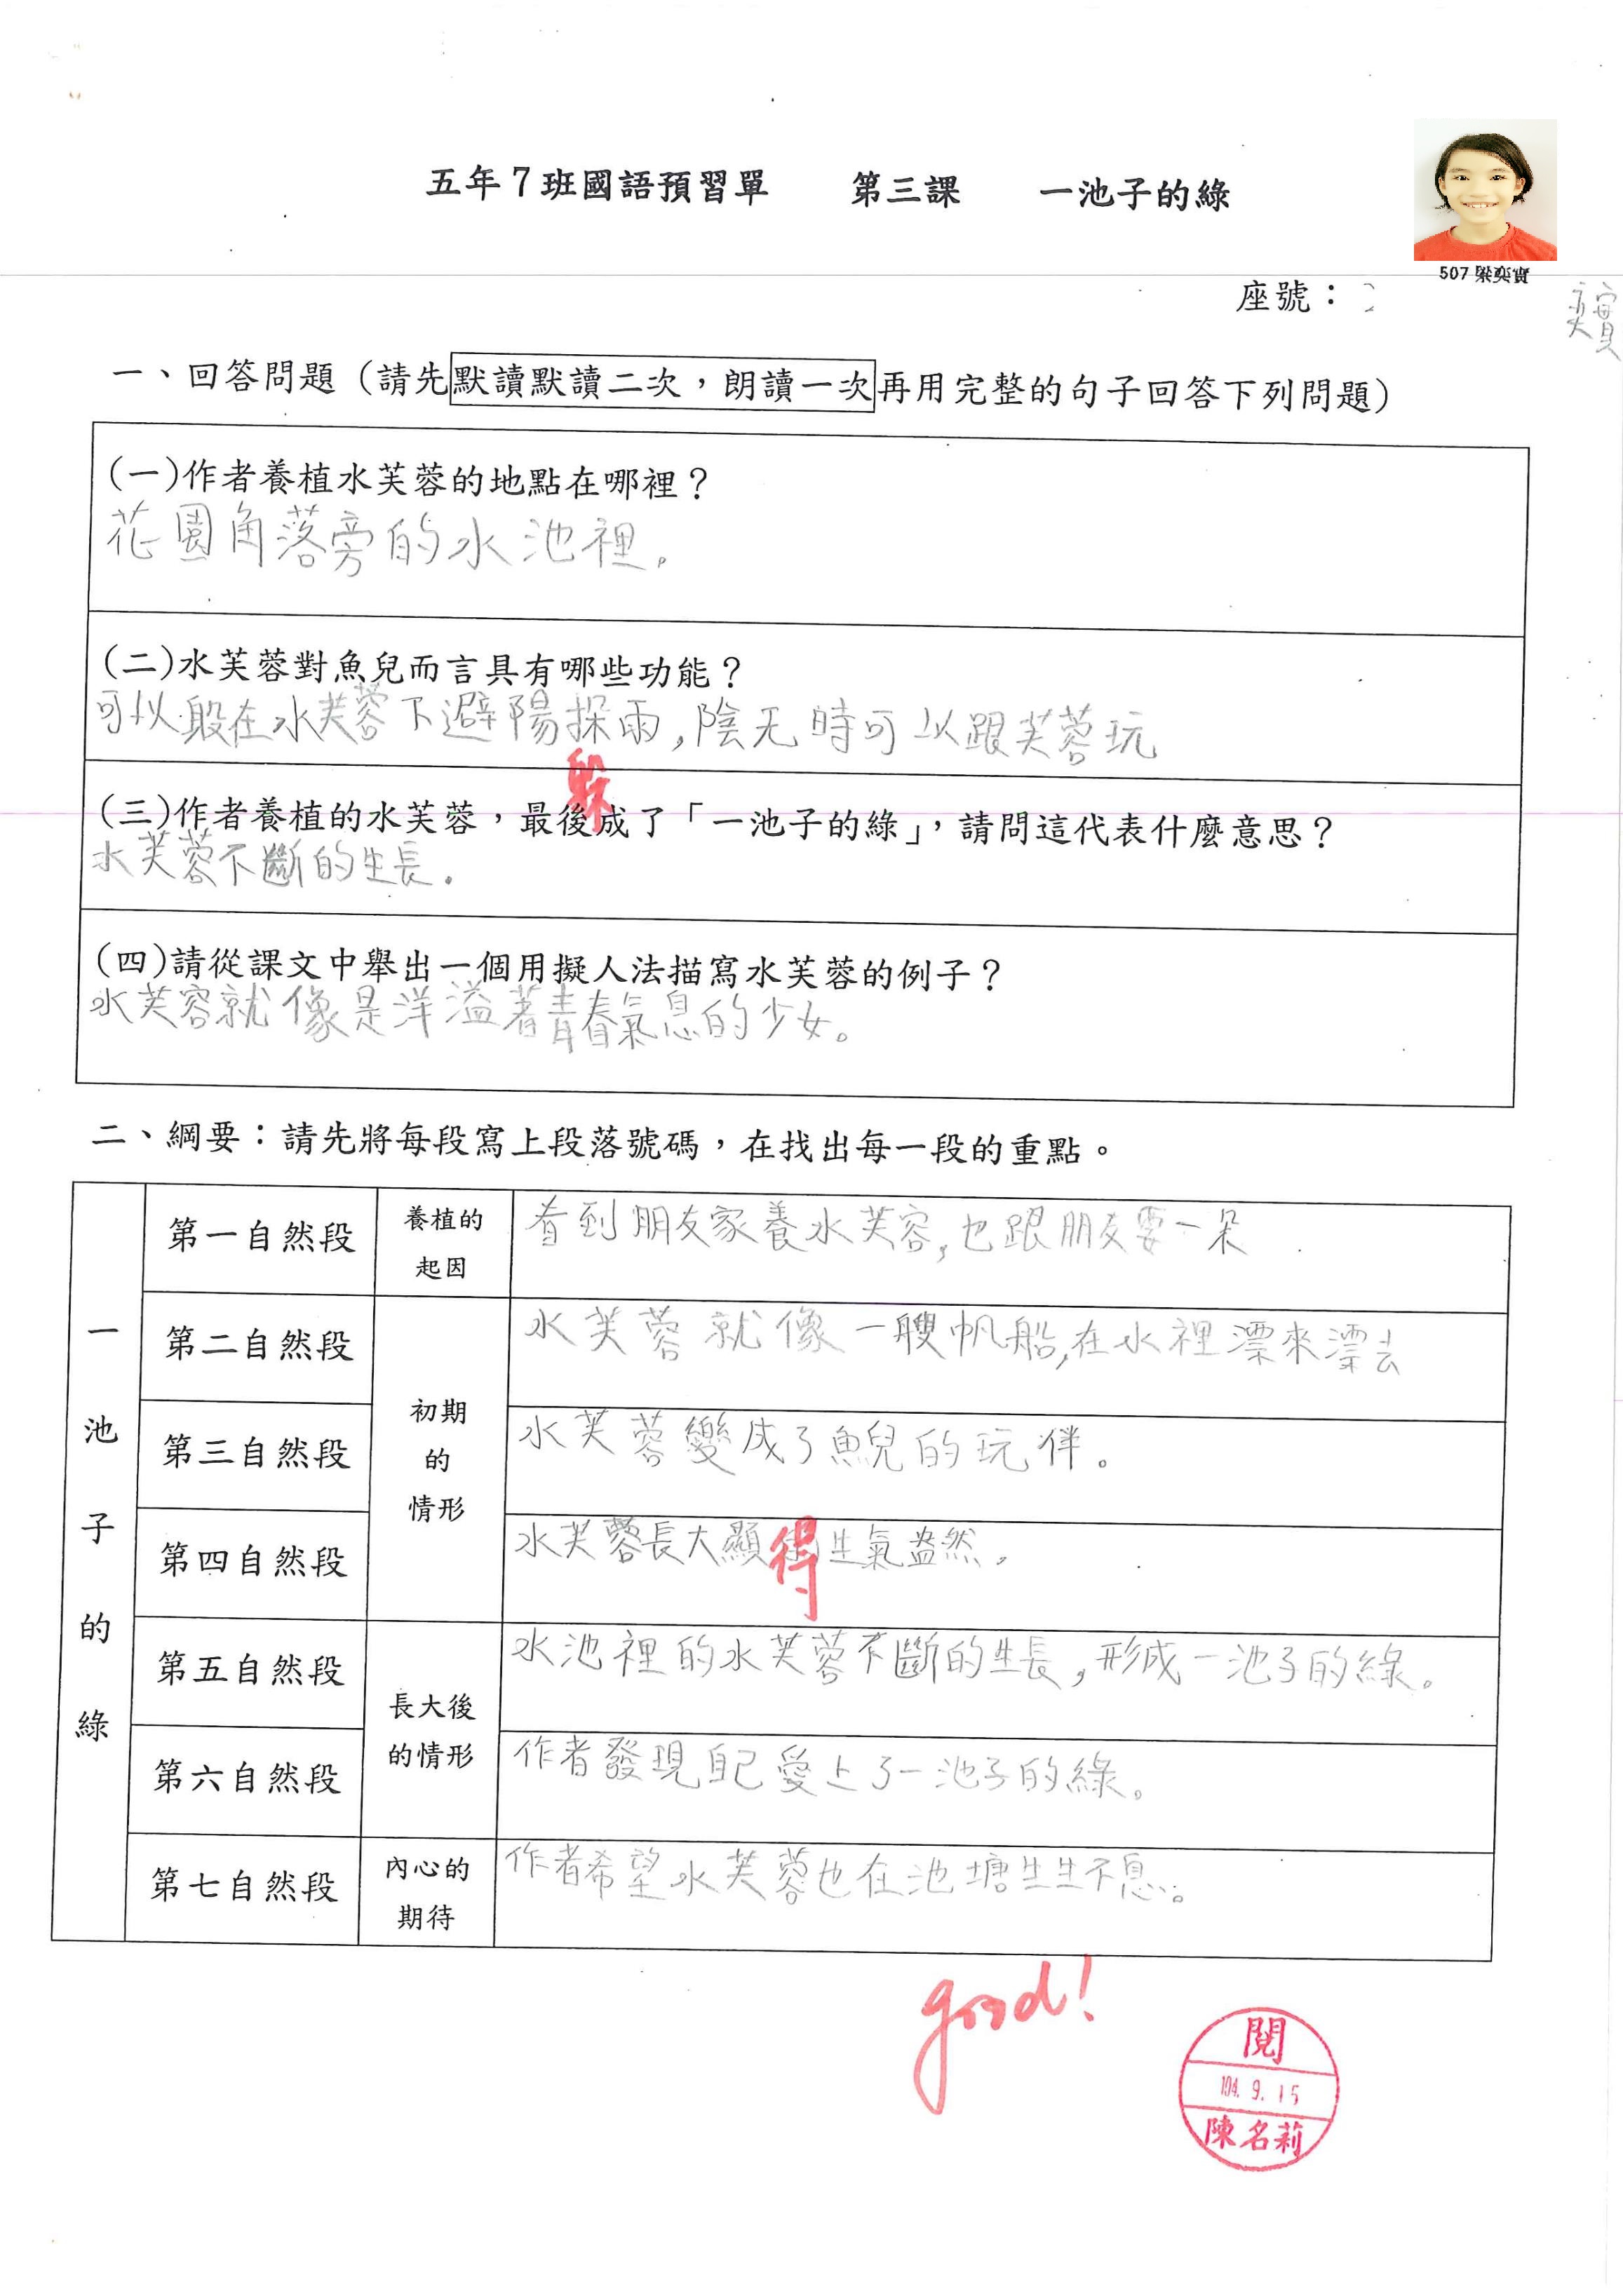 五年7班國語預習單 第三課 一池子的綠
507 梁奕寶
座號：2
奕寶
一、回答問題（請先默讀默讀二次，朗讀一次再用完整的句子回答下列問題）
(一)作者養植水芙蓉的地點在哪裡？
花園角落旁的水池裡。
(二)水芙蓉對魚兒而言具有哪些功能？
可以躲在水芙蓉下避陽探雨，陰天時可以跟芙蓉玩
躲
(三)作者養植的水芙蓉，最後成了「一池子的綠」，請問這代表什麼意思？
水芙蓉不斷的生長。
(四)請從課文中舉出一個用擬人法描寫水芙蓉的例子？
水芙容就像是洋溢著青春氣息的少女。
二、綱要：請先將每段寫上段落號碼，在找出每一段的重點。
一池子的綠
第一自然段 養植的起因 看到朋友家養水芙容，也跟朋友要一朵
第二自然段 初期的情形 水芙蓉就像一艘帆船，在水裡漂來漂去
第三自然段 水芙蓉變成了魚兒的玩伴。
第四自然段 水芙蓉長大顯得生氣盎然。
第五自然段 長大後的情形 水池裡的水芙蓉不斷的生長，形成一池子的綠。
第六自然段 作者發現自己愛上了一池子的綠。
第七自然段 內心的期待 作者希望水芙蓉也在池塘生生不息。
good!
閱
104. 9. 15
陳名莉